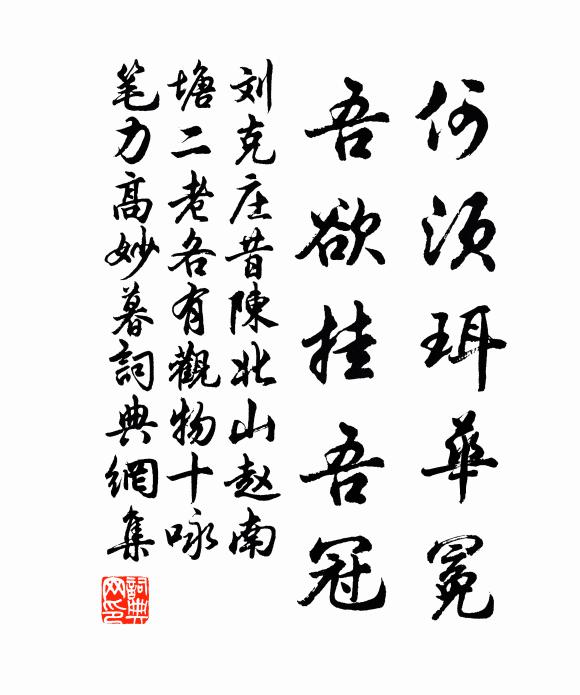 何须珥华冕
吾欲挂吾冠
刘克庄昔陳北山赵南
塘二老各有觀物十咏
笔力高妙暮詞典網集
詞典网印